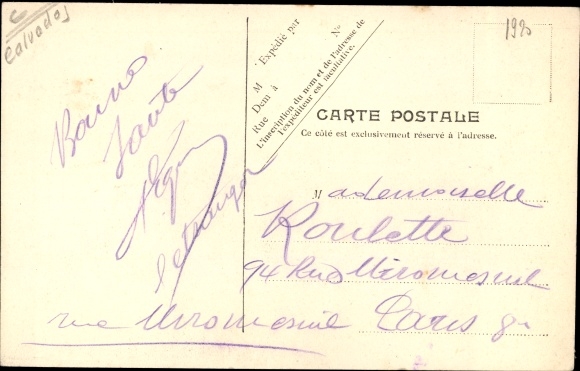 Calvados
1920
M
Expédié par
Nº
Dem à
Rue
L'inscription du nom et de l'adresse de
l'expéditeur est facultative.
CARTE POSTALE
Ce côté est exclusivement réservé à l'adresse.
Bonne
Santé
l'étranger
Mademoiselle
Roulette
94 Rue Miromesnil
Paris 8e
rue Miromesnil